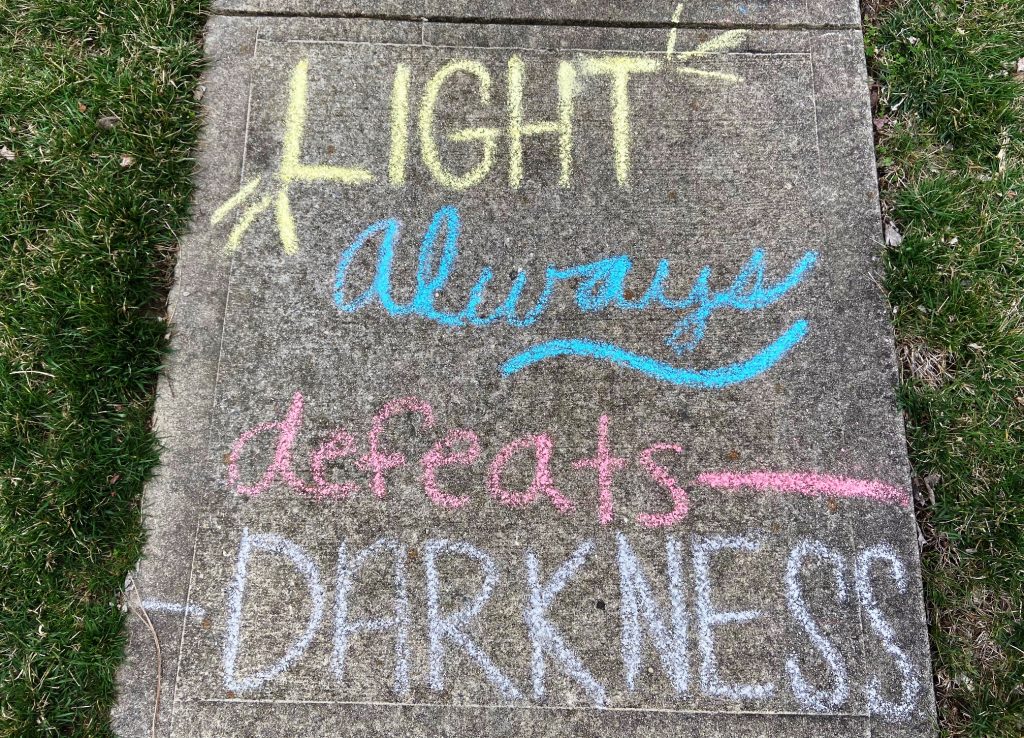 LIGHT
always
defeats
DARKNESS